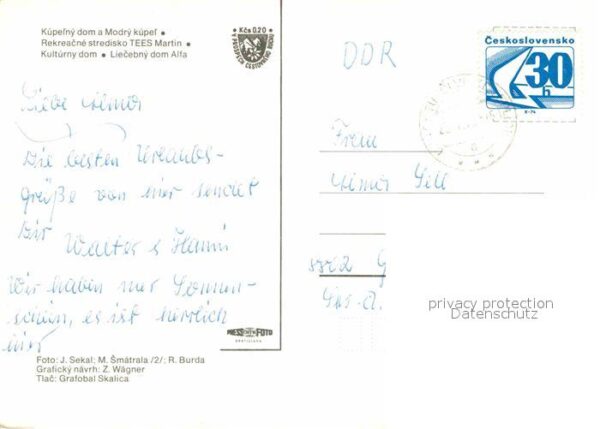 Kúpeľný dom a Modrý kúpeľ •
Rekreačné stredisko TEES Martin •
Kultúrny dom • Liečebný dom Alfa
Kčs 0,20
Liebe
Die besten Urlaubs-
grüße von hier sendet
Dir Walter & Hanni
Wir haben nur Sonnen-
schein, es ist herrlich
hier
PRESSFOTO
BRATISLAVA
Foto: J. Sekal; M. Šmátrala /2/; R. Burda
Grafický návrh: Z. Wágner
Tlač: Grafobal Skalica
DDR
Československo
30
h
Frau
privacy protection
Datenschutz